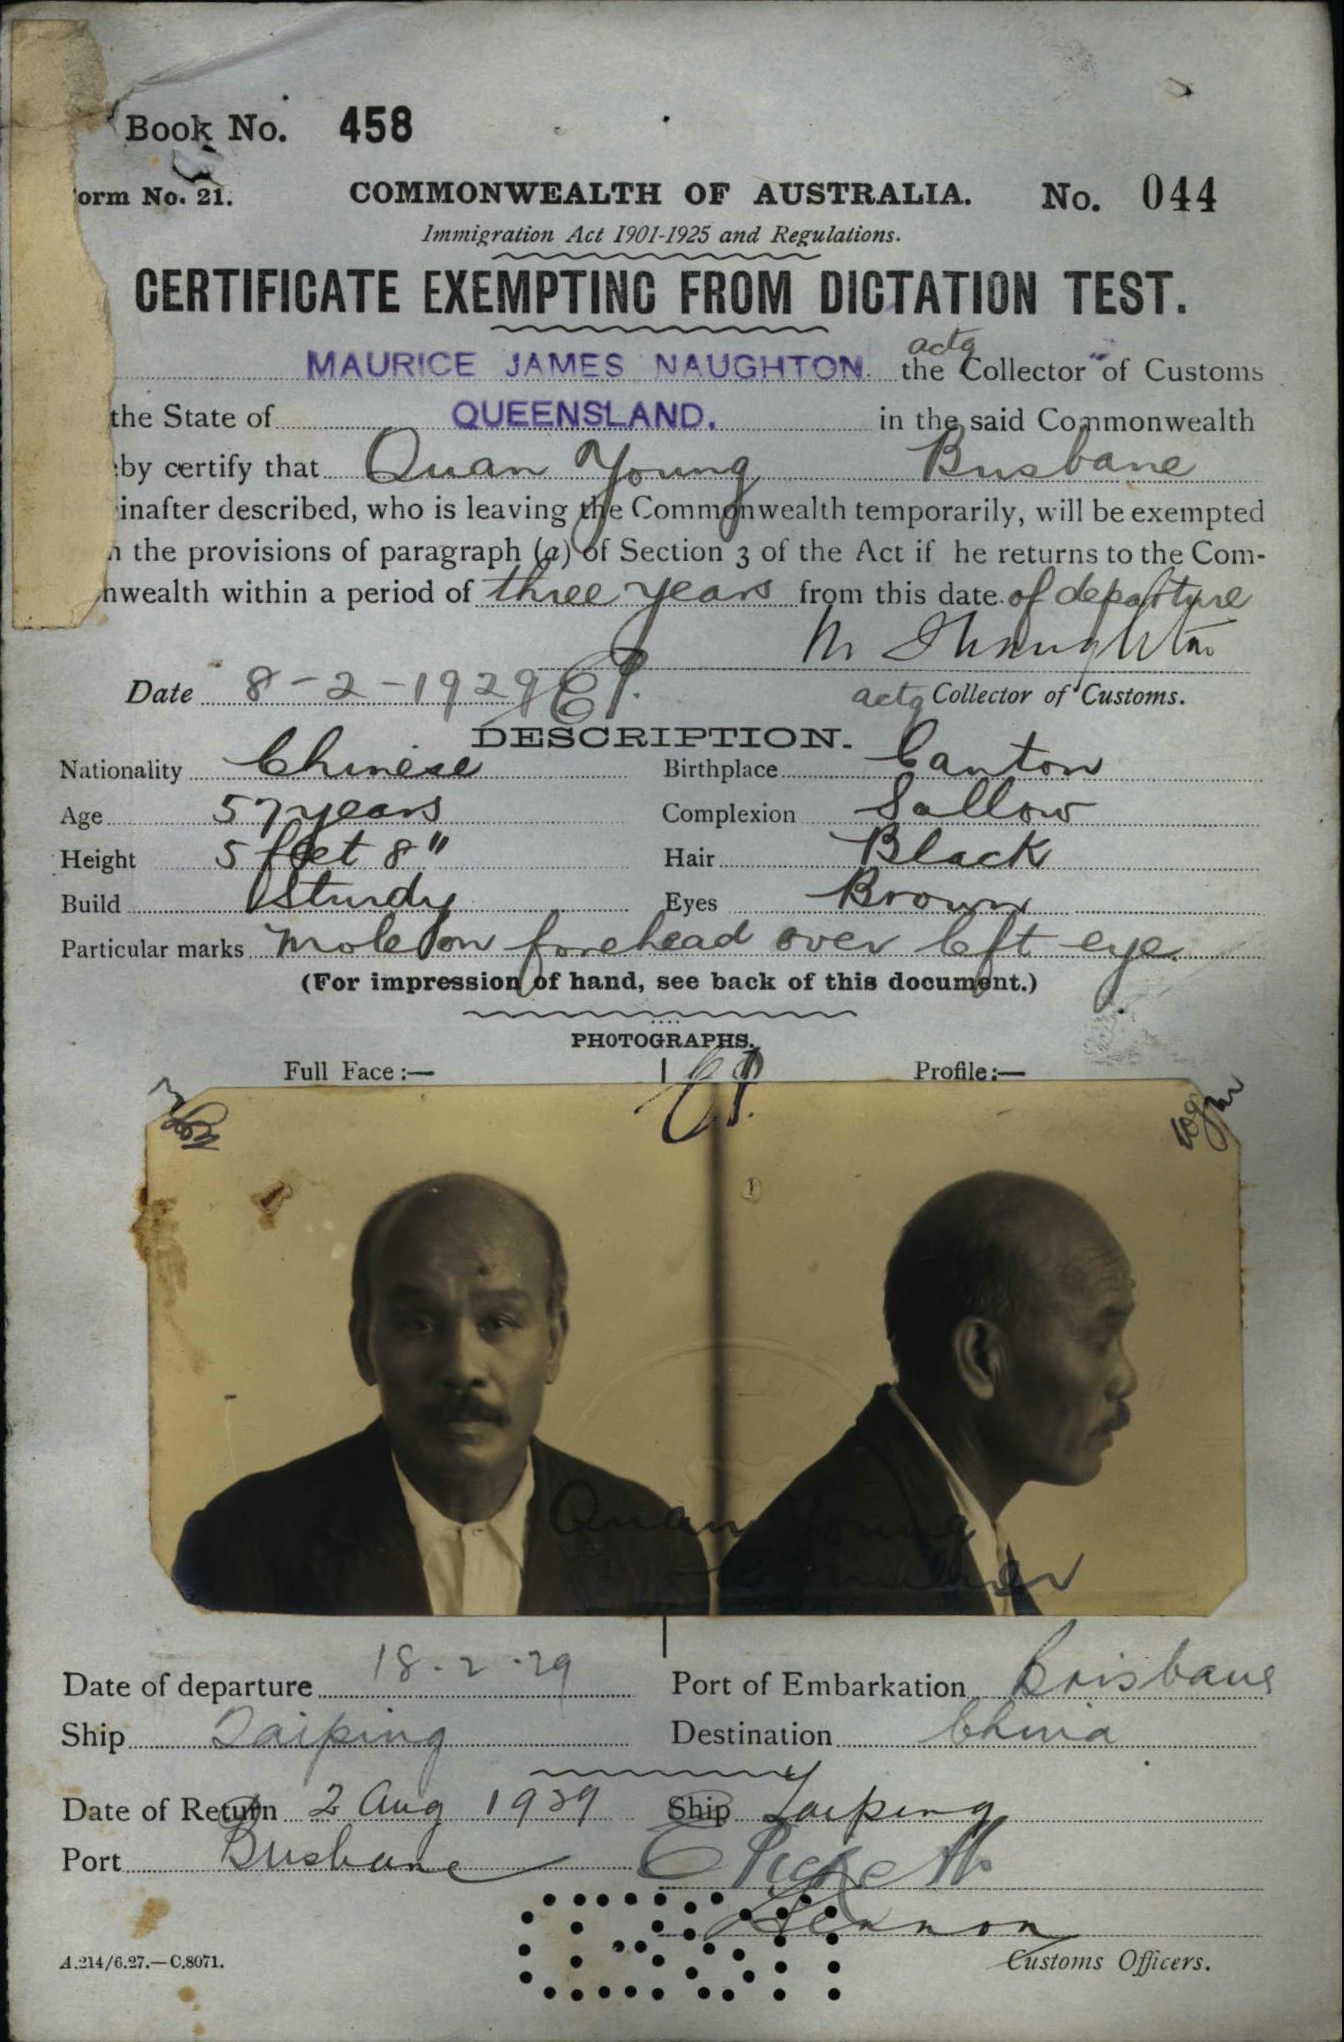 Book No. 458
orm No. 21. COMMONWEALTH OF AUSTRALIA. No. 044
Immigration Act 1901-1925 and Regulations.
CERTIFICATE EXEMPTING FROM DICTATION TEST.
MAURICE JAMES NAUGHTON. the actg Collector of Customs
the State of QUEENSLAND. in the said Commonwealth
by certify that Quan Young Brisbane
inafter described, who is leaving the Commonwealth temporarily, will be exempted
the provisions of paragraph (a) of Section 3 of the Act if he returns to the Com-
nwealth within a period of three years from this date of departure
M J Naughton
Date 8-2-1929 actg Collector of Customs.
DESCRIPTION.
Nationality Chinese Birthplace Canton
Age 57 years Complexion Sallow
Height 5 feet 8" Hair Black
Build Sturdy Eyes Brown
Particular marks mole on forehead over left eye.
(For impression of hand, see back of this document.)
PHOTOGRAPHS.
Full Face:— Profile:—
Quan Young
Date of departure 18-2-29 Port of Embarkation Brisbane
Ship Taiping Destination China
Date of Return 2 Aug 1929 Ship Taiping
Port Brisbane
Lennon
A.214/6.27.—C.8071. Customs Officers.